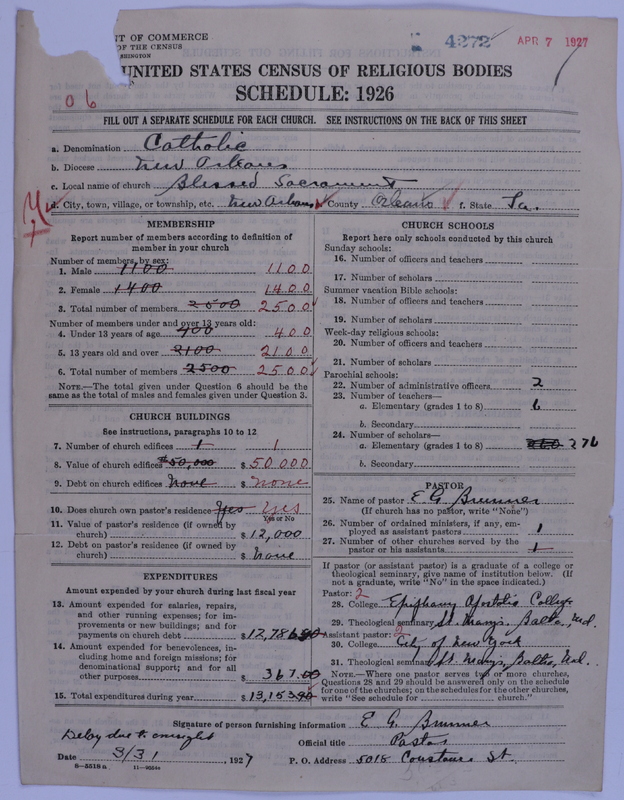 NT OF COMMERCE
OF THE CENSUS
WASHINGTON
4272
APR 7 1927
UNITED STATES CENSUS OF RELIGIOUS BODIES
SCHEDULE: 1926
0 6
FILL OUT A SEPARATE SCHEDULE FOR EACH CHURCH. SEE INSTRUCTIONS ON THE BACK OF THIS SHEET
a. Denomination Catholic
b. Diocese New Orleans
c. Local name of church Blessed Sacrament
d. City, town, village, or township, etc. New Orleans County Orleans f. State La.
MEMBERSHIP
Report number of members according to definition of
member in your church
Number of members, by sex:
1. Male 1100 1100
2. Female 1400 1400
3. Total number of members 2500 2500
Number of members under and over 13 years old:
4. Under 13 years of age 400 400
5. 13 years old and over 2100 2100
6. Total number of members 2500 2500
NOTE.—The total given under Question 6 should be the
same as the total of males and females given under Question 3.
CHURCH BUILDINGS
See instructions, paragraphs 10 to 12
7. Number of church edifices 1 1
8. Value of church edifices $50,000 $ 50 000
9. Debt on church edifices None $ none
10. Does church own pastor's residence? Yes Yes
Yes or No
11. Value of pastor's residence (if owned by
church) $ 12,000
12. Debt on pastor's residence (if owned by
church) $ None
EXPENDITURES
Amount expended by your church during last fiscal year
13. Amount expended for salaries, repairs,
and other running expenses; for im-
provements or new buildings; and for
payments on church debt $ 12,786
14. Amount expended for benevolences, in-
cluding home and foreign missions; for
denominational support; and for all
other purposes $ 367.00
15. Total expenditures during year $ 13,153
CHURCH SCHOOLS
Report here only schools conducted by this church
Sunday schools:
16. Number of officers and teachers
17. Number of scholars
Summer vacation Bible schools:
18. Number of officers and teachers
19. Number of scholars
Week-day religious schools:
20. Number of officers and teachers
21. Number of scholars
Parochial schools:
22. Number of administrative officers 2
23. Number of teachers—
a. Elementary (grades 1 to 8) 6
b. Secondary
24. Number of scholars—
a. Elementary (grades 1 to 8) 276
b. Secondary
PASTOR
25. Name of pastor E G Brunner
(If church has no pastor, write "None")
26. Number of ordained ministers, if any, em-
ployed as assistant pastors 1
27. Number of other churches served by the
pastor or his assistants 1
If pastor (or assistant pastor) is a graduate of a college or
theological seminary, give name of institution below. (If
not a graduate, write "No" in the space indicated.)
Pastor: 2
28. College Epiphany Apostolic College
29. Theological seminary St. Mary's, Balto, Md.
Assistant pastor: 2
30. College City of New York
31. Theological seminary St. Mary's, Balto, Md.
NOTE.—Where one pastor serves two or more churches,
Questions 28 and 29 should be answered only on the schedule
for one of the churches; on the schedules for the other churches,
write "See schedule for church."
Signature of person furnishing information E. G. Brunner
Delay due to oversight
Official title Pastor
Date 3/31, 1927 P. O. Address 5018 Constance St.
8—5518 a 11—9554